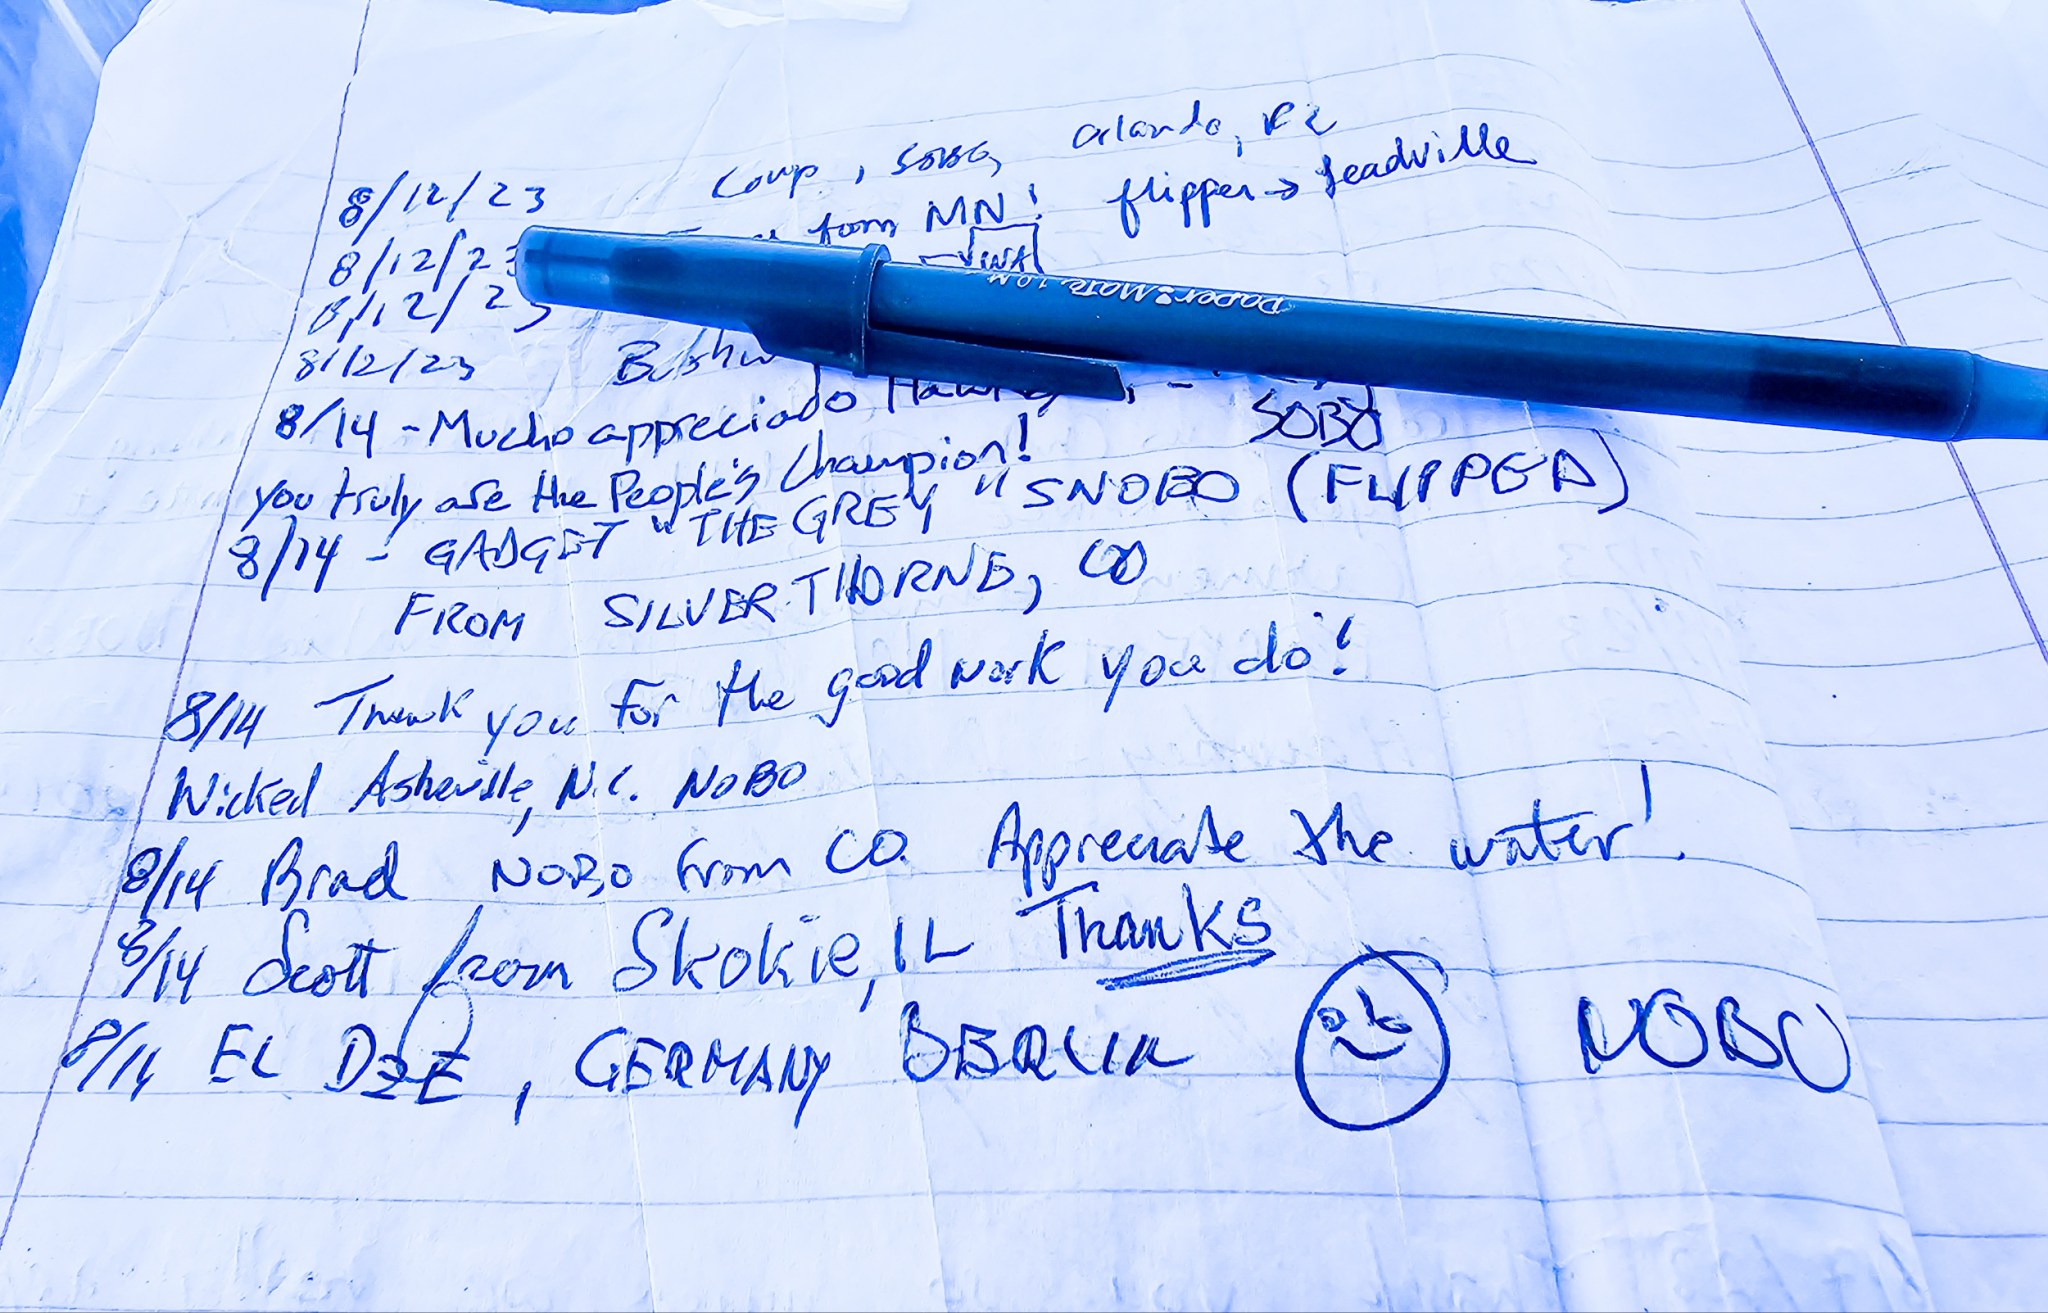 8/12/23 Coup, SOBO, Orlando, FL
8/12/23 from MN! flipper → Leadville
8/12/23 WA
PaperMate 1.0 M
8/12/23
SOBO
8/14 - Mucho appreciado
you truly are the People's Champion!
8/14 - GADGET "THE GREY" SNOBO (FLIPPED)
FROM SILVERTHORNE, CO
8/14 Thank you For the good work you do!
Wicked Asheville, N.C. NOBO
8/14 Brad NOBO from CO. Appreciate the water!
8/14 Scott from Skokie, IL Thanks
8/14 EL DEE, GERMANY BERLIN NOBO